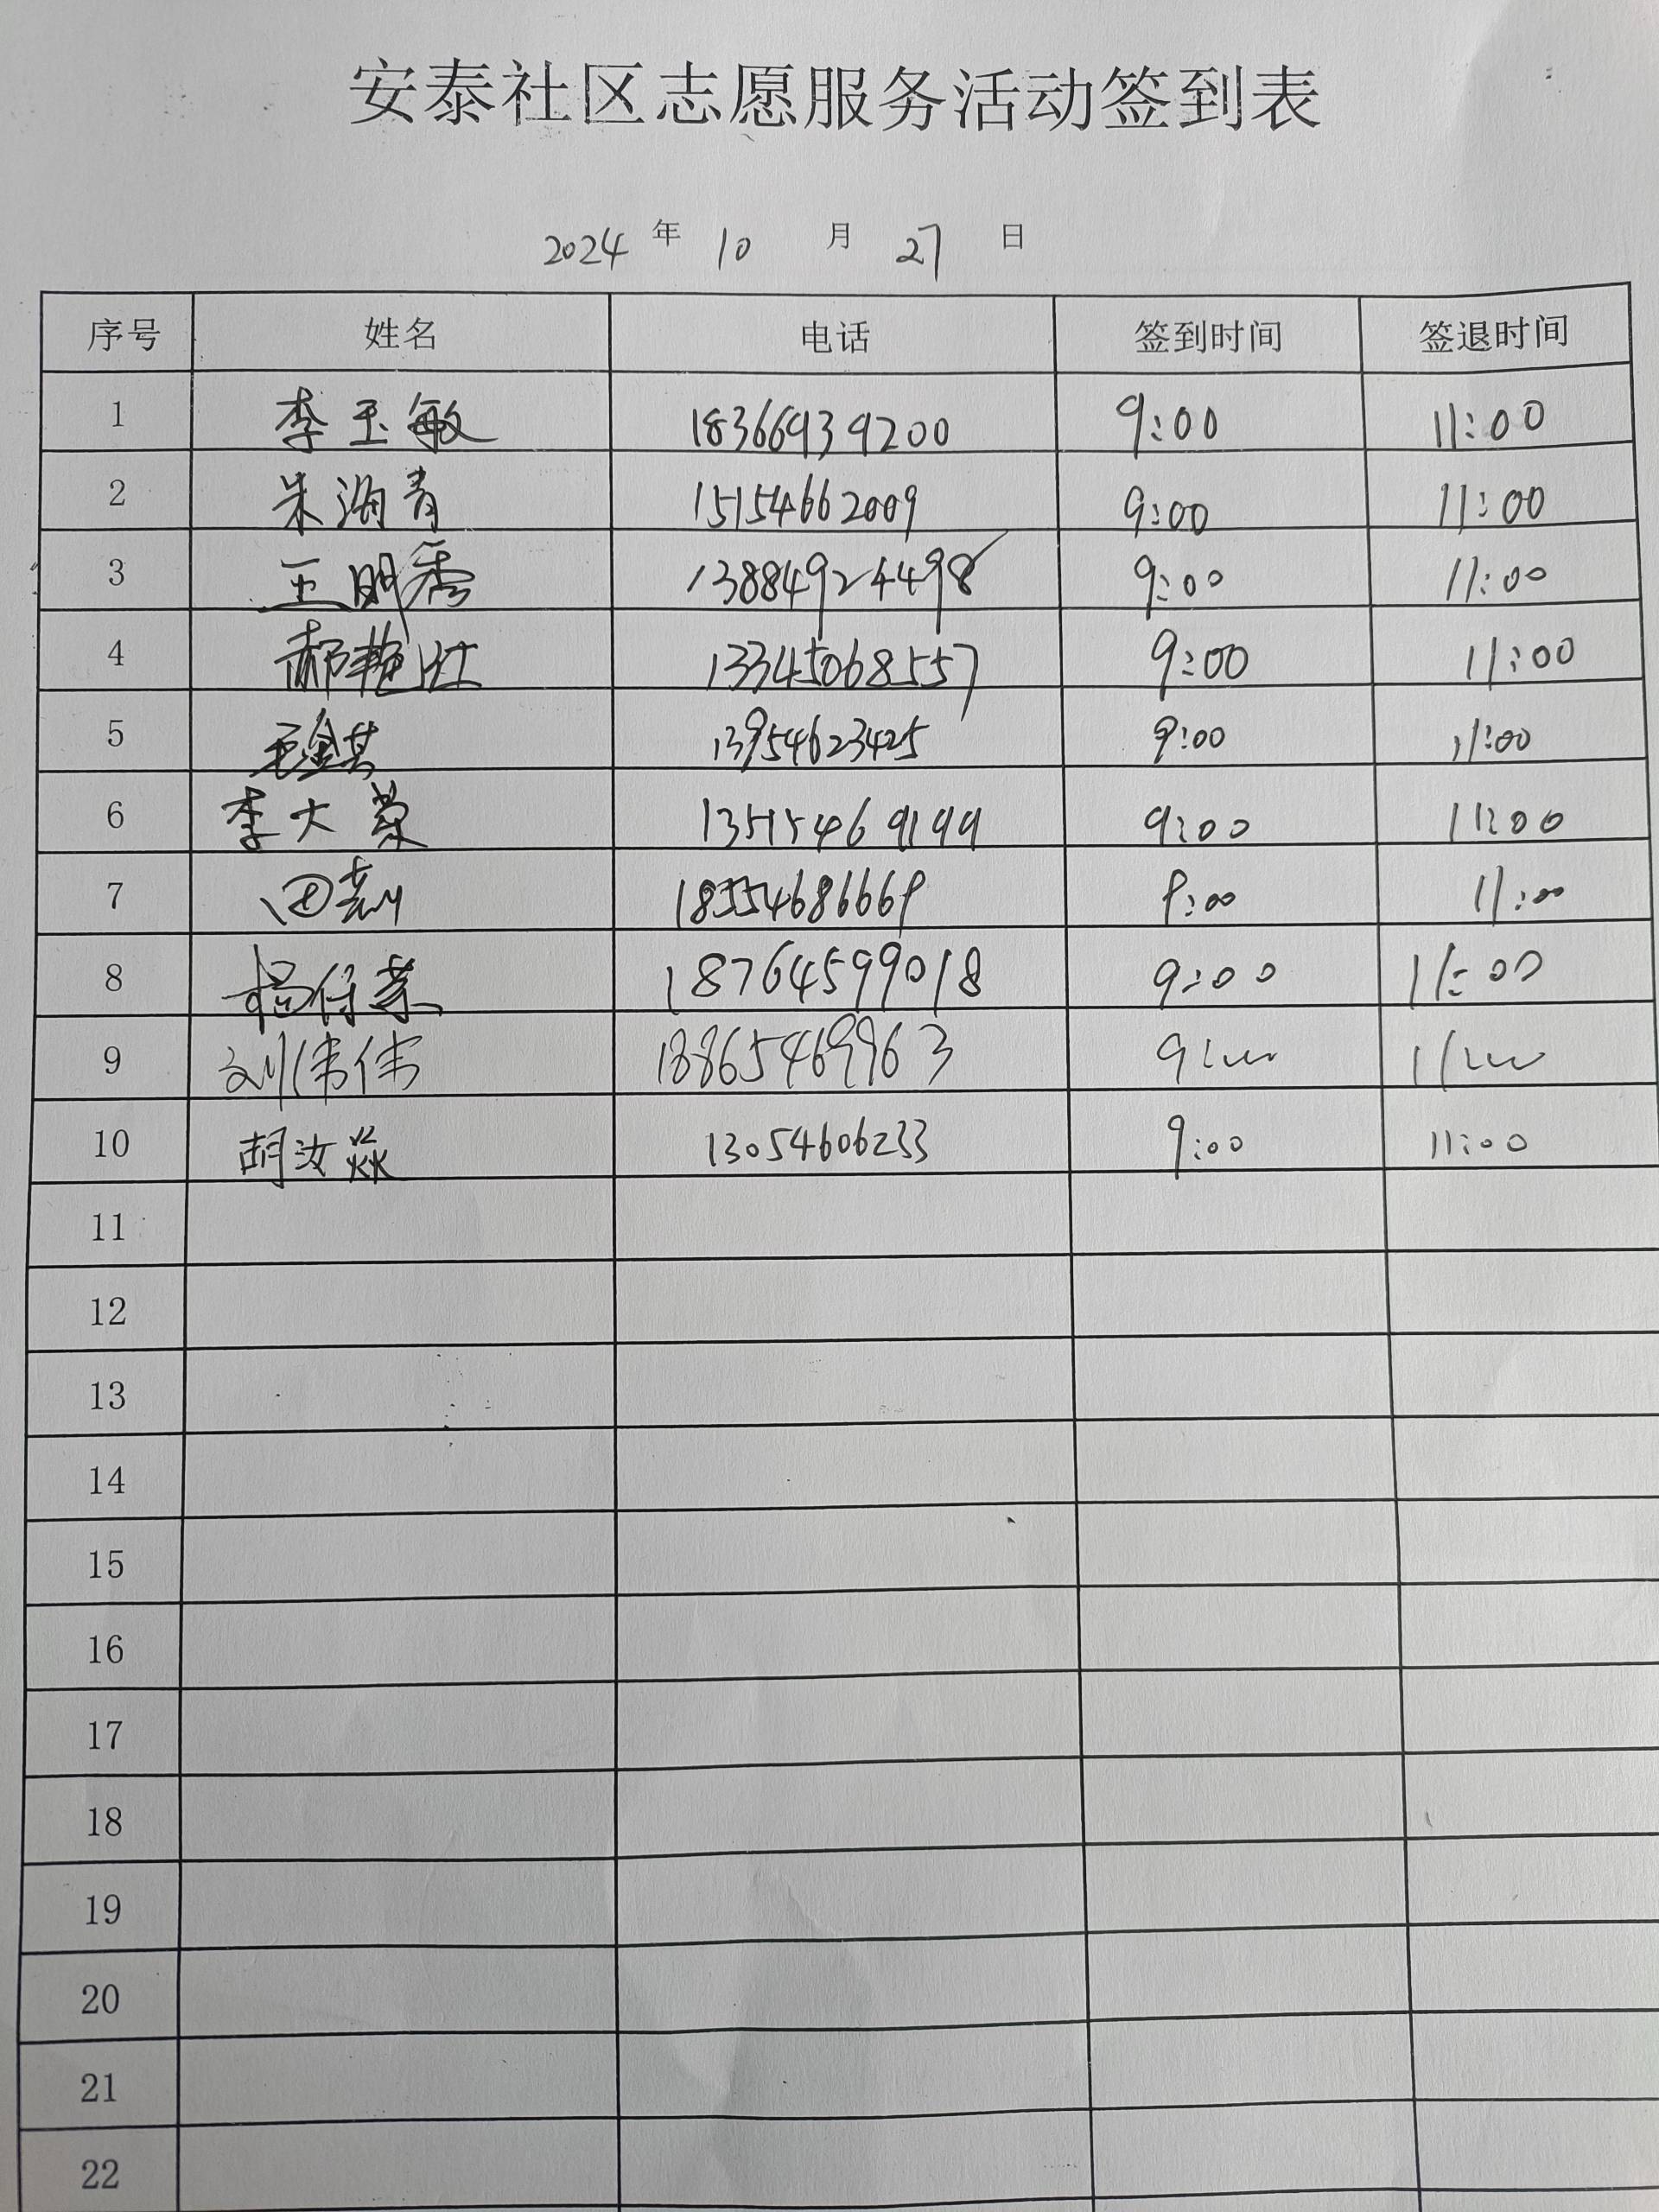 安泰社区志愿服务活动签到表
2024 年 10 月 27 日
序号 姓名 电话 签到时间 签退时间
1 李玉敏 18366939200 9:00 11:00
2 朱海青 15154662009 9:00 11:00
3 王明秀 13884924498 9:00 11:00
4 郝艳红 13345068557 9:00 11:00
5 13954623425 9:00 11:00
6 李大荣 13515469199 9:00 11:00
7 田 18554686669 9:00 11:00
8 杨仔荣 18764599018 9:00 11:00
9 刘伟伟 18865469963 9:00 11:00
10 胡汝焱 13054606233 9:00 11:00
11
12
13
14
15
16
17
18
19
20
21
22